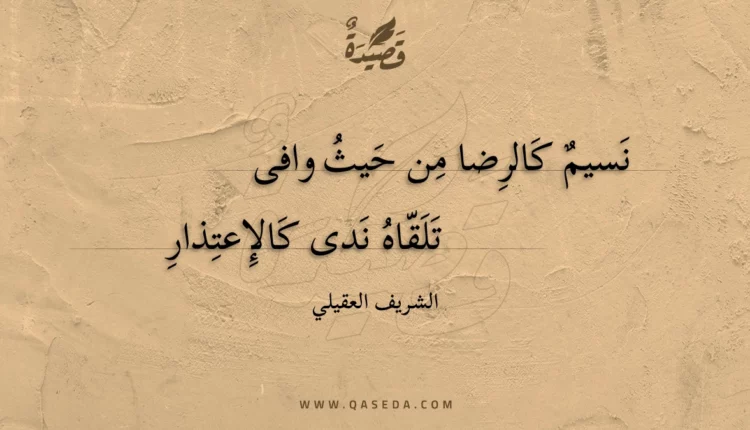 قَصِيدَةٌ
نَسيمٌ كَالرِضا مِن حَيثُ وافى
تَلَقّاهُ نَدى كَالإِعتِذارِ
الشريف العقيلي
WWW.QASEDA.COM